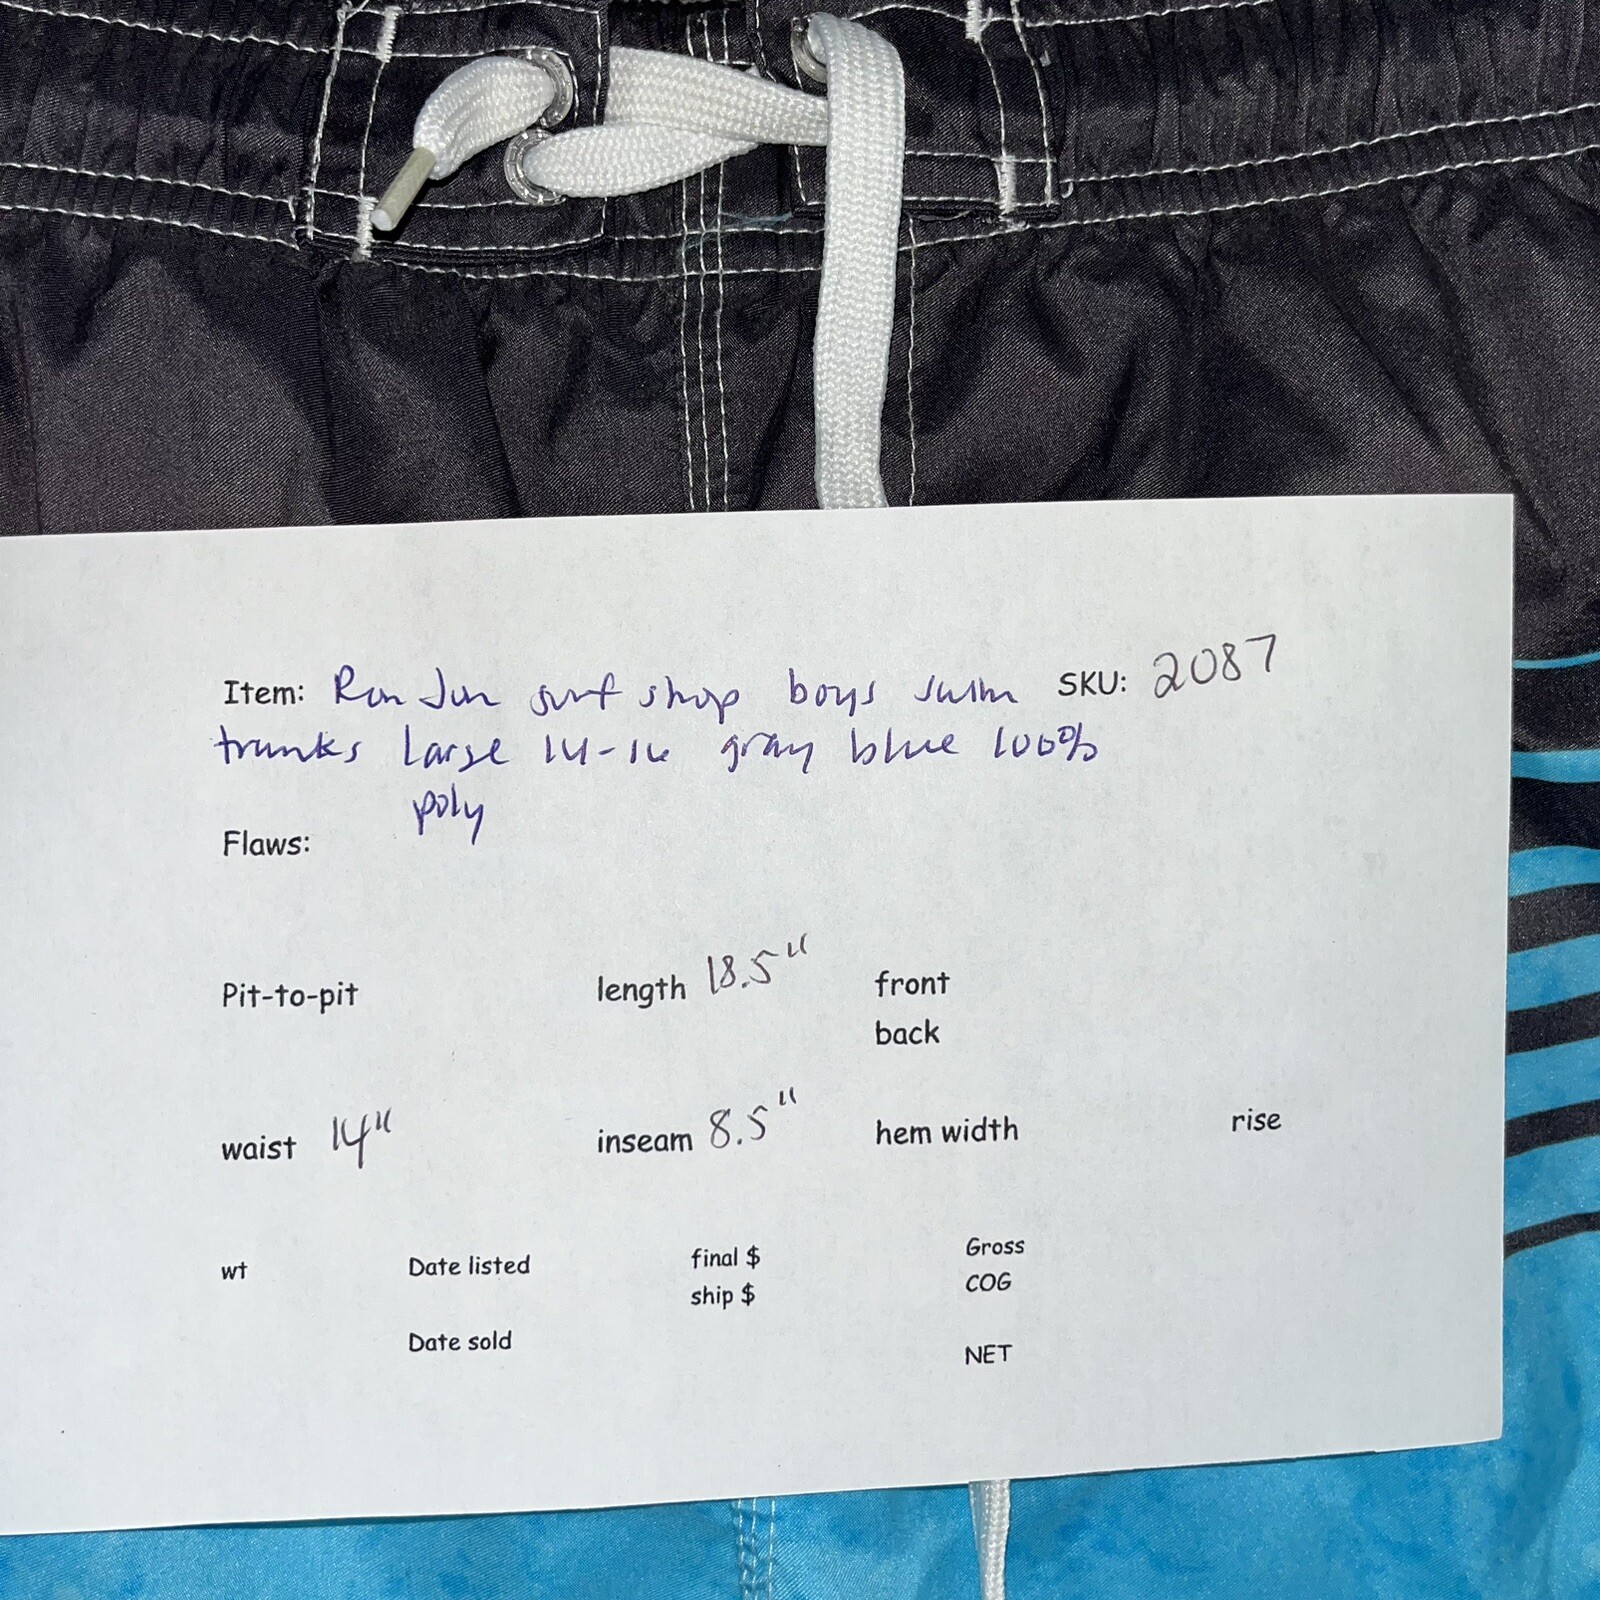 Item: Ron Jon surf shop boys swim SKU: 2087
trunks large 14-16 gray blue 100%
poly
Flaws:
Pit-to-pit length 18.5" front
back
waist 14" inseam 8.5" hem width rise
wt Date listed final $ Gross
ship $ COG
Date sold NET